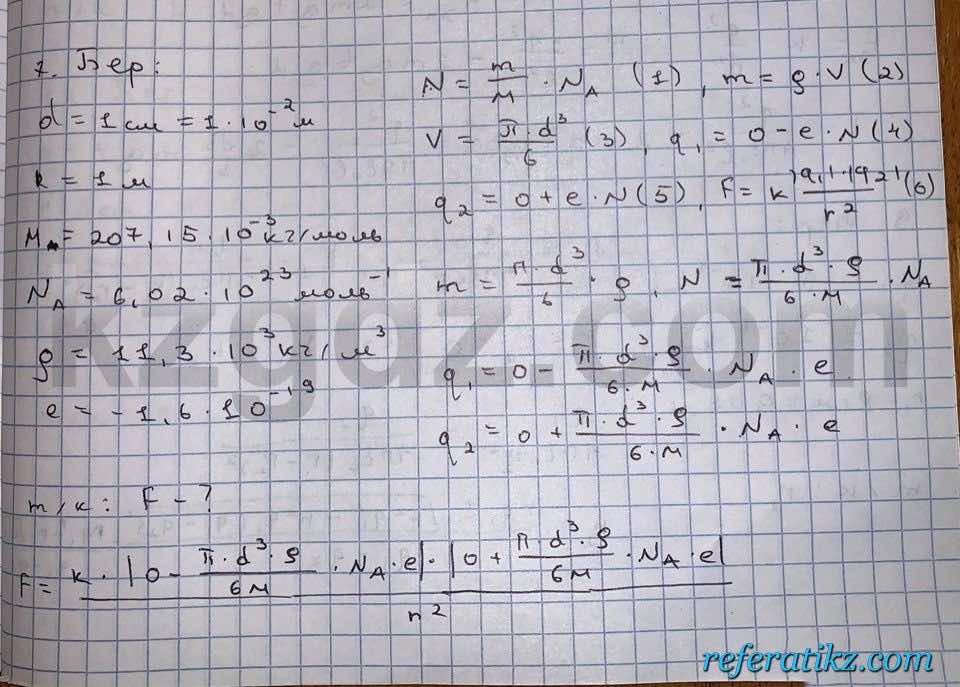 7. Бер:
d = 1 см = 1 · 10⁻² м
r = 1 м
M = 207,15 · 10⁻³ кг/моль
N_A = 6,02 · 10²³ моль⁻¹
ρ = 11,3 · 10³ кг/м³
e = -1,6 · 10⁻¹⁹
т/к: F - ?
N = m/M · N_A (1), m = ρ · V (2)
V = π · d³/6 (3), q₁ = 0 - e · N (4)
q₂ = 0 + e · N (5), F = k |q₁| · |q₂|/r² (6)
m = π · d³/6 · ρ, N = π · d³ · ρ/6 · M · N_A
q₁ = 0 - π · d³ · ρ/6 · M · N_A · e
q₂ = 0 + π · d³ · ρ/6 · M · N_A · e
F = k · |0 - π · d³ · ρ/6M · N_A · e| · |0 + π · d³ · ρ/6M · N_A · e|/r²
kzgdz.com
referatikz.com